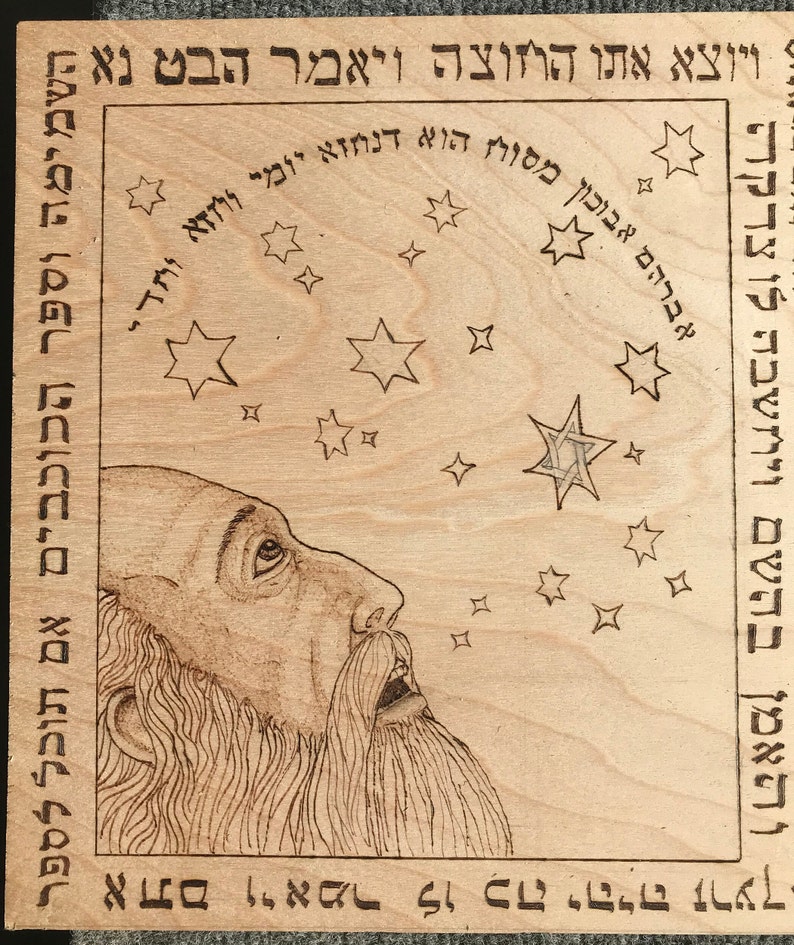 ויוצא אתו החוצה ויאמר הבט נא
השמימה וספר הכוכבים אם תוכל לספר
אתם ויאמר לו כה יהיה זרעך
והאמן בהשם ויחשבה לו צדקה
אברהם אבוכון מסוח הוא דנחזא יומי וחזא וחדי